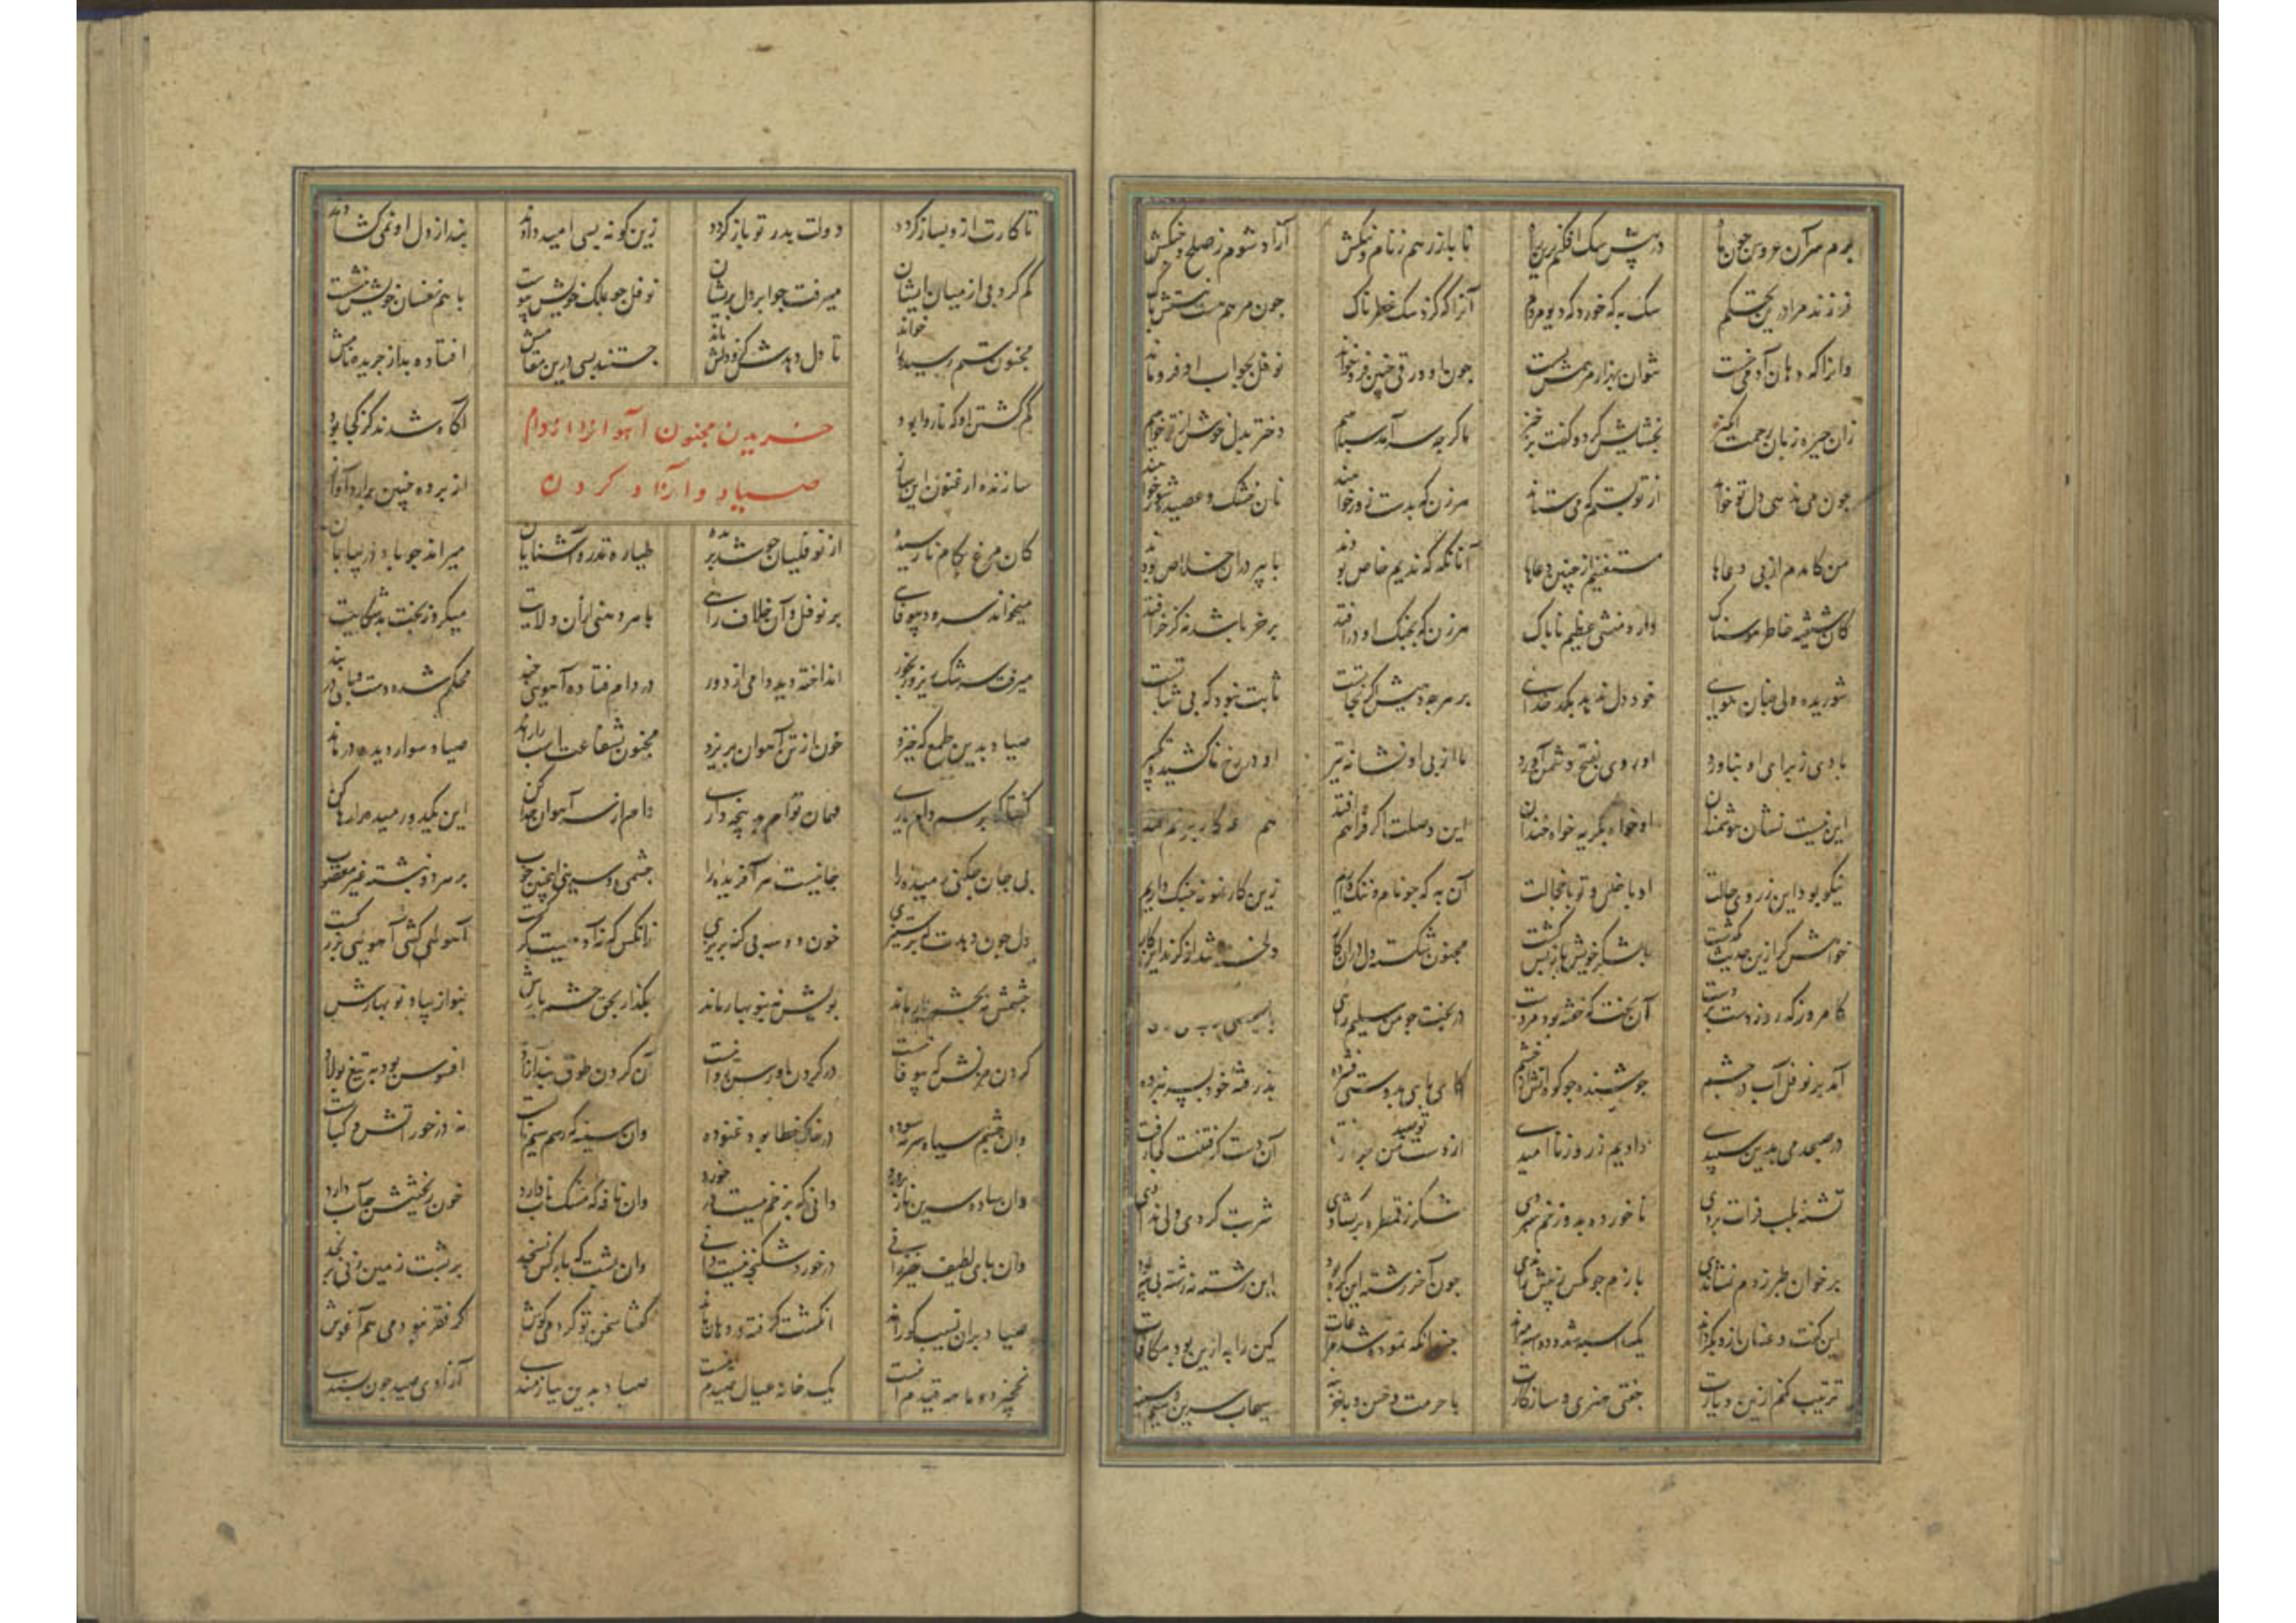 برم سر آن عروس چون ماه در پیش سگ افکنم درین راه تا باز رهم ز نام و ننگش آزاد شوم ز صلح و جنگش
فرزند مرا درین تحکم سگ به که خورد که دیو مردم آنرا که گزد سگ خطرناک چون مرهم هست نیستش باک
وانرا که دهان آدمی خست نتوان بهزار مرهمش بست چون او ورقی چنین فرو خواند نوفل بجواب او فرو ماند
زان چیره زبان رحمت انگیز بخشایش کرد و گفت برخیز ما گرچه سرآمد سپاهیم دختر بدل خوش از تو خواهیم
چون می ندهی دل تو از تو بستم که می ستاند هر زن که بدست زور خواهند نان خشک و عصیده شور خواهند
من کامدم از پی دعاها مستغنیم از چنین دعاها آنانکه ندیم خاص بودند با پیر دران خلاص بودند
کان شیفته خاطر هوسناک دارد منشی عظیم ناپاک هر زن که بچنگ او درافتد بر خر باشد نه کز خر افتد
شوریده دلی چنان هوایی خود دل ندهد بکدخدایی بر هرچه دهیش اگر نجاتست ثابت نبود که بی ثباتست
ما دی ز برای او بناورد او روی بفتح دشمن آورد ما از پی او نشانه تیر او در رخ ما کشیده تکبیر
این نیست نشان هوشمندان او خواه بگریه خواه خندان این وصلت اگر فراهم افتد هم
نیکو نبود این ز روی حالت او با خلل و تو با خجالت آن به که چو نام و ننگ داریم زین کار نمونه چنگ داریم
خواهشگر ازین حدیث بگذشت با لشکر خویش باز پس گشت مجنون شکسته دل دران کار دلخسته شد از گزند این کار
کامروز که روز آن بخت که خفته بود در بخت چو من سلیم
آمد بر نوفل آب در چشم جوشنده چو کوه آتش از خشم کای پای بدوستی فشرده پذرفته خود بسر نبرده
در صبحدمی بدین سپیدی دادیم ز روز ناامیدی از دست من آن دست گرفتنت کجا رفت
تشنه بلب فرات بردی ناخورده بدوزخم سپردی شکر ز قمطره برگشادی شربت کردی ولی ندادی
بر خوان طبرزدم نشاندی بازم چو مگس ز پیش راندی چون آخر رشته این گره بود این رشته نرشته بی به بود
این گفت و عنان ازو بگرداند یک اسبه شد و دو اسبه میراند چندانکه نموده شد مراعات کین را به ازین بود مکافات
ترتیب کنم ازین دیارت جفتی هنری و سازگارت با حرمت و حسن و سیماب سرین و سیم سینه
تا کارت ازو بساز گردد دولت بدر تو باز گردد زین گونه بسی امید دادند بند از دل او نمی گشادند
گم کرد پی از میان ایشان میرفت چو ابر دل پریشان نوفل چو بملک خویش پیوست با هم نفسان خویش بنشست
مجنون ستم رسیده را خواند تا دل دهدش کزو دلش ماند جستند بسی درین مقامش افتاده بد از جریده نامش
گم گشتن او که ناروا بود آگاه شدند کز کجا بود
خریدن مجنون آهو از دام
صیاد و آزاد کردن
سازنده ارغنون این ساز از پرده چنین برآرد آواز
کان مرغ بکام نارسیده از نوفلیان چو شد بریده طیاره تندرو شتابان میراند چو باد در بیابان
میخواند سرود بیوفایی بر نوفل و آن خلاف رایی با هر دمنی از آن ولایت میکرد ز بخت بد شکایت
میرفت سرشک ریز و رنجور انداخته دید دامی از دور در دام فتاده آهویی چند محکم شده دست و پای در بند
صیاد بدین طمع که خیزد خون از تن آهوان بریزد مجنون بشفاعت اسب را راند صیاد سوار دید و درماند
گفتا که برسم دام یاری مهمان توام بهر چه داری دام از سر آهوان جدا کن این یکدو رمیده را رها کن
بی جان چکنی رمیده را جانیست هر آفریده را چشمی و سرینی اینچنین خوب بر هر دو نبشته غیر مغضوب
دل چون دهدت که بر ستیزی خون دو سه بی گنه بریزی زانکس که نه آدمیست گرگست آهو کشی آهویی بزرگست
چشمش نه بچشم یار ماند بویش نه بنوبهار ماند بگذار بحق چشم یارش بنواز بیاد نوبهارش
گردن مزنش که بیوفا نیست در گردن او رسن روا نیست آن گردن طوق بند آزاد افسوس بود به تیغ پولاد
وان چشم سیاه سرمه سوده در خاک خطا بود غنوده وان سینه که رشک سیم نابست نه در خور آتش و کبابست
وان ساده سرین نازپرورد دانی که بزخم نیست در خورد وان نافه که مشک ناب دارد خون ریختنش چه آب دارد
وان پای لطیف خیزرانی درخورد شکنجه نیست دانی وان پشت که بار کس نسنجد بر پشت زمین زنی برنجد
صیاد بران نسیب کو راند انگشت گرفته در دهان ماند گفتا سخن تو کردمی گوش گر فقر نبودمی هم آغوش
نخچیر دو ماهه قیدم اینست یک خانه عیال صیدم اینست صیاد بدین نیازمندی آزادی صید چون پسندی